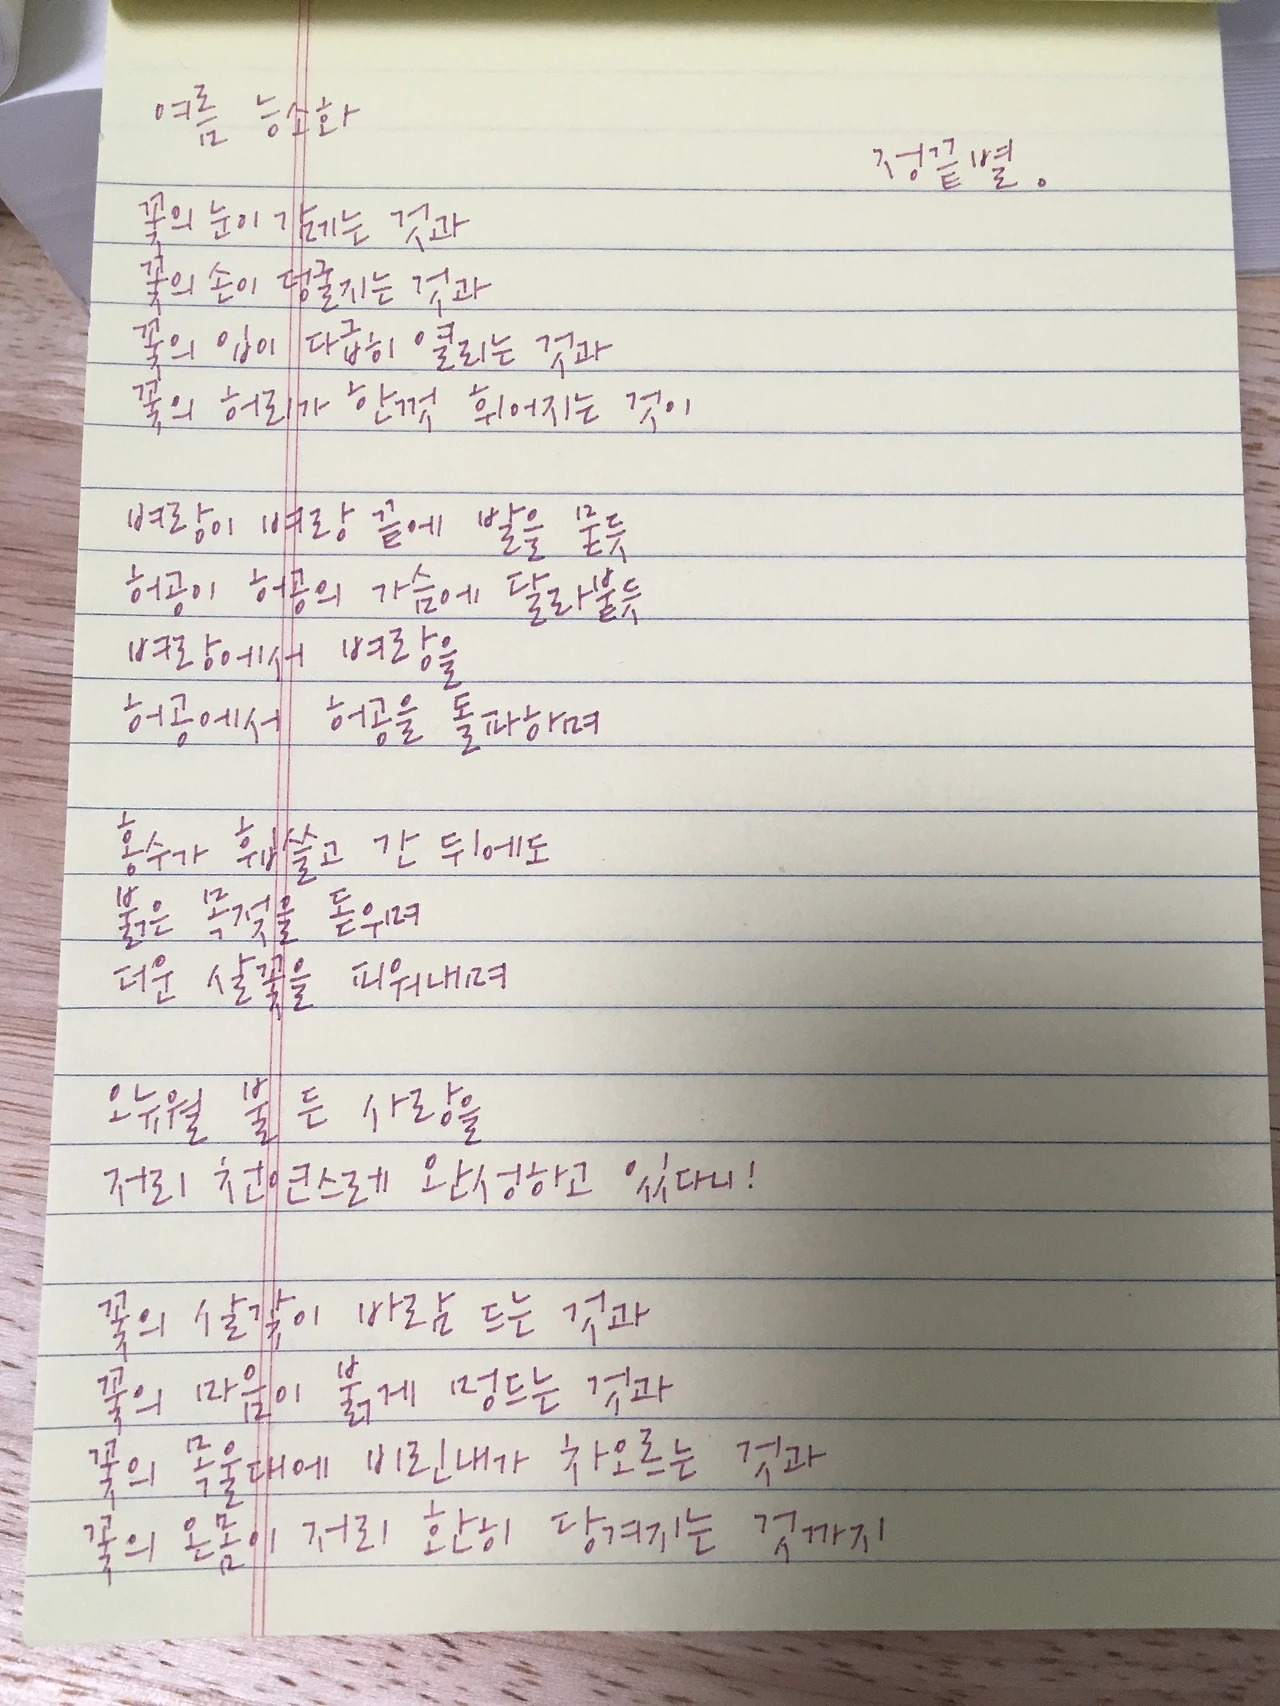 여름 능소화
정끝별.
꽃의 눈이 감기는 것과
꽃의 손이 덩굴지는 것과
꽃의 입이 다급히 열리는 것과
꽃의 허리가 한껏 휘어지는 것이
벼랑이 벼랑 끝에 발을 묻듯
허공이 허공의 가슴에 달라붙듯
벼랑에서 벼랑을
허공에서 허공을 돌파하며
홍수가 휩쓸고 간 뒤에도
붉은 목젖을 돋우며
더운 살꽃을 피워내며
오뉴월 불 든 사랑을
저리 천연스레 완성하고 있다니!
꽃의 살갗이 바람 드는 것과
꽃의 마음이 붉게 멍드는 것과
꽃의 목울대에 비린내가 차오르는 것과
꽃의 온몸이 저리 환히 당겨지는 것까지